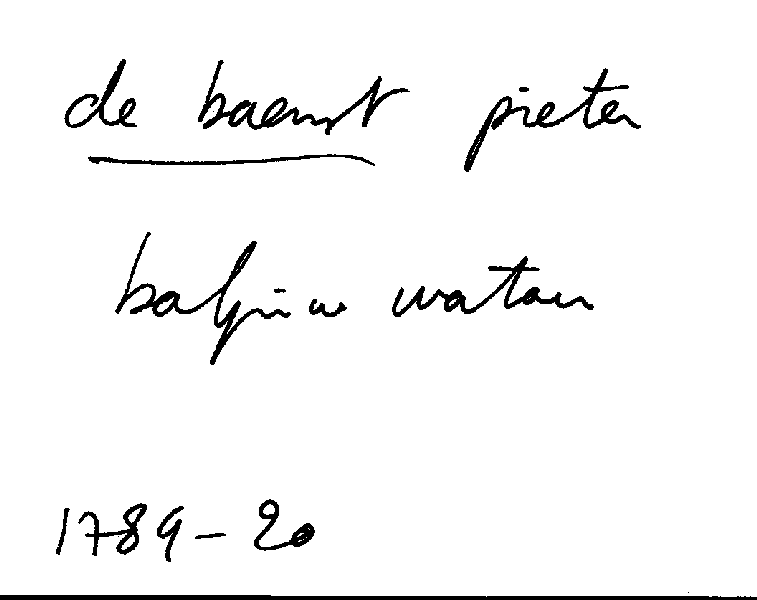 de baenst pieter
baljuw watou
1789-20